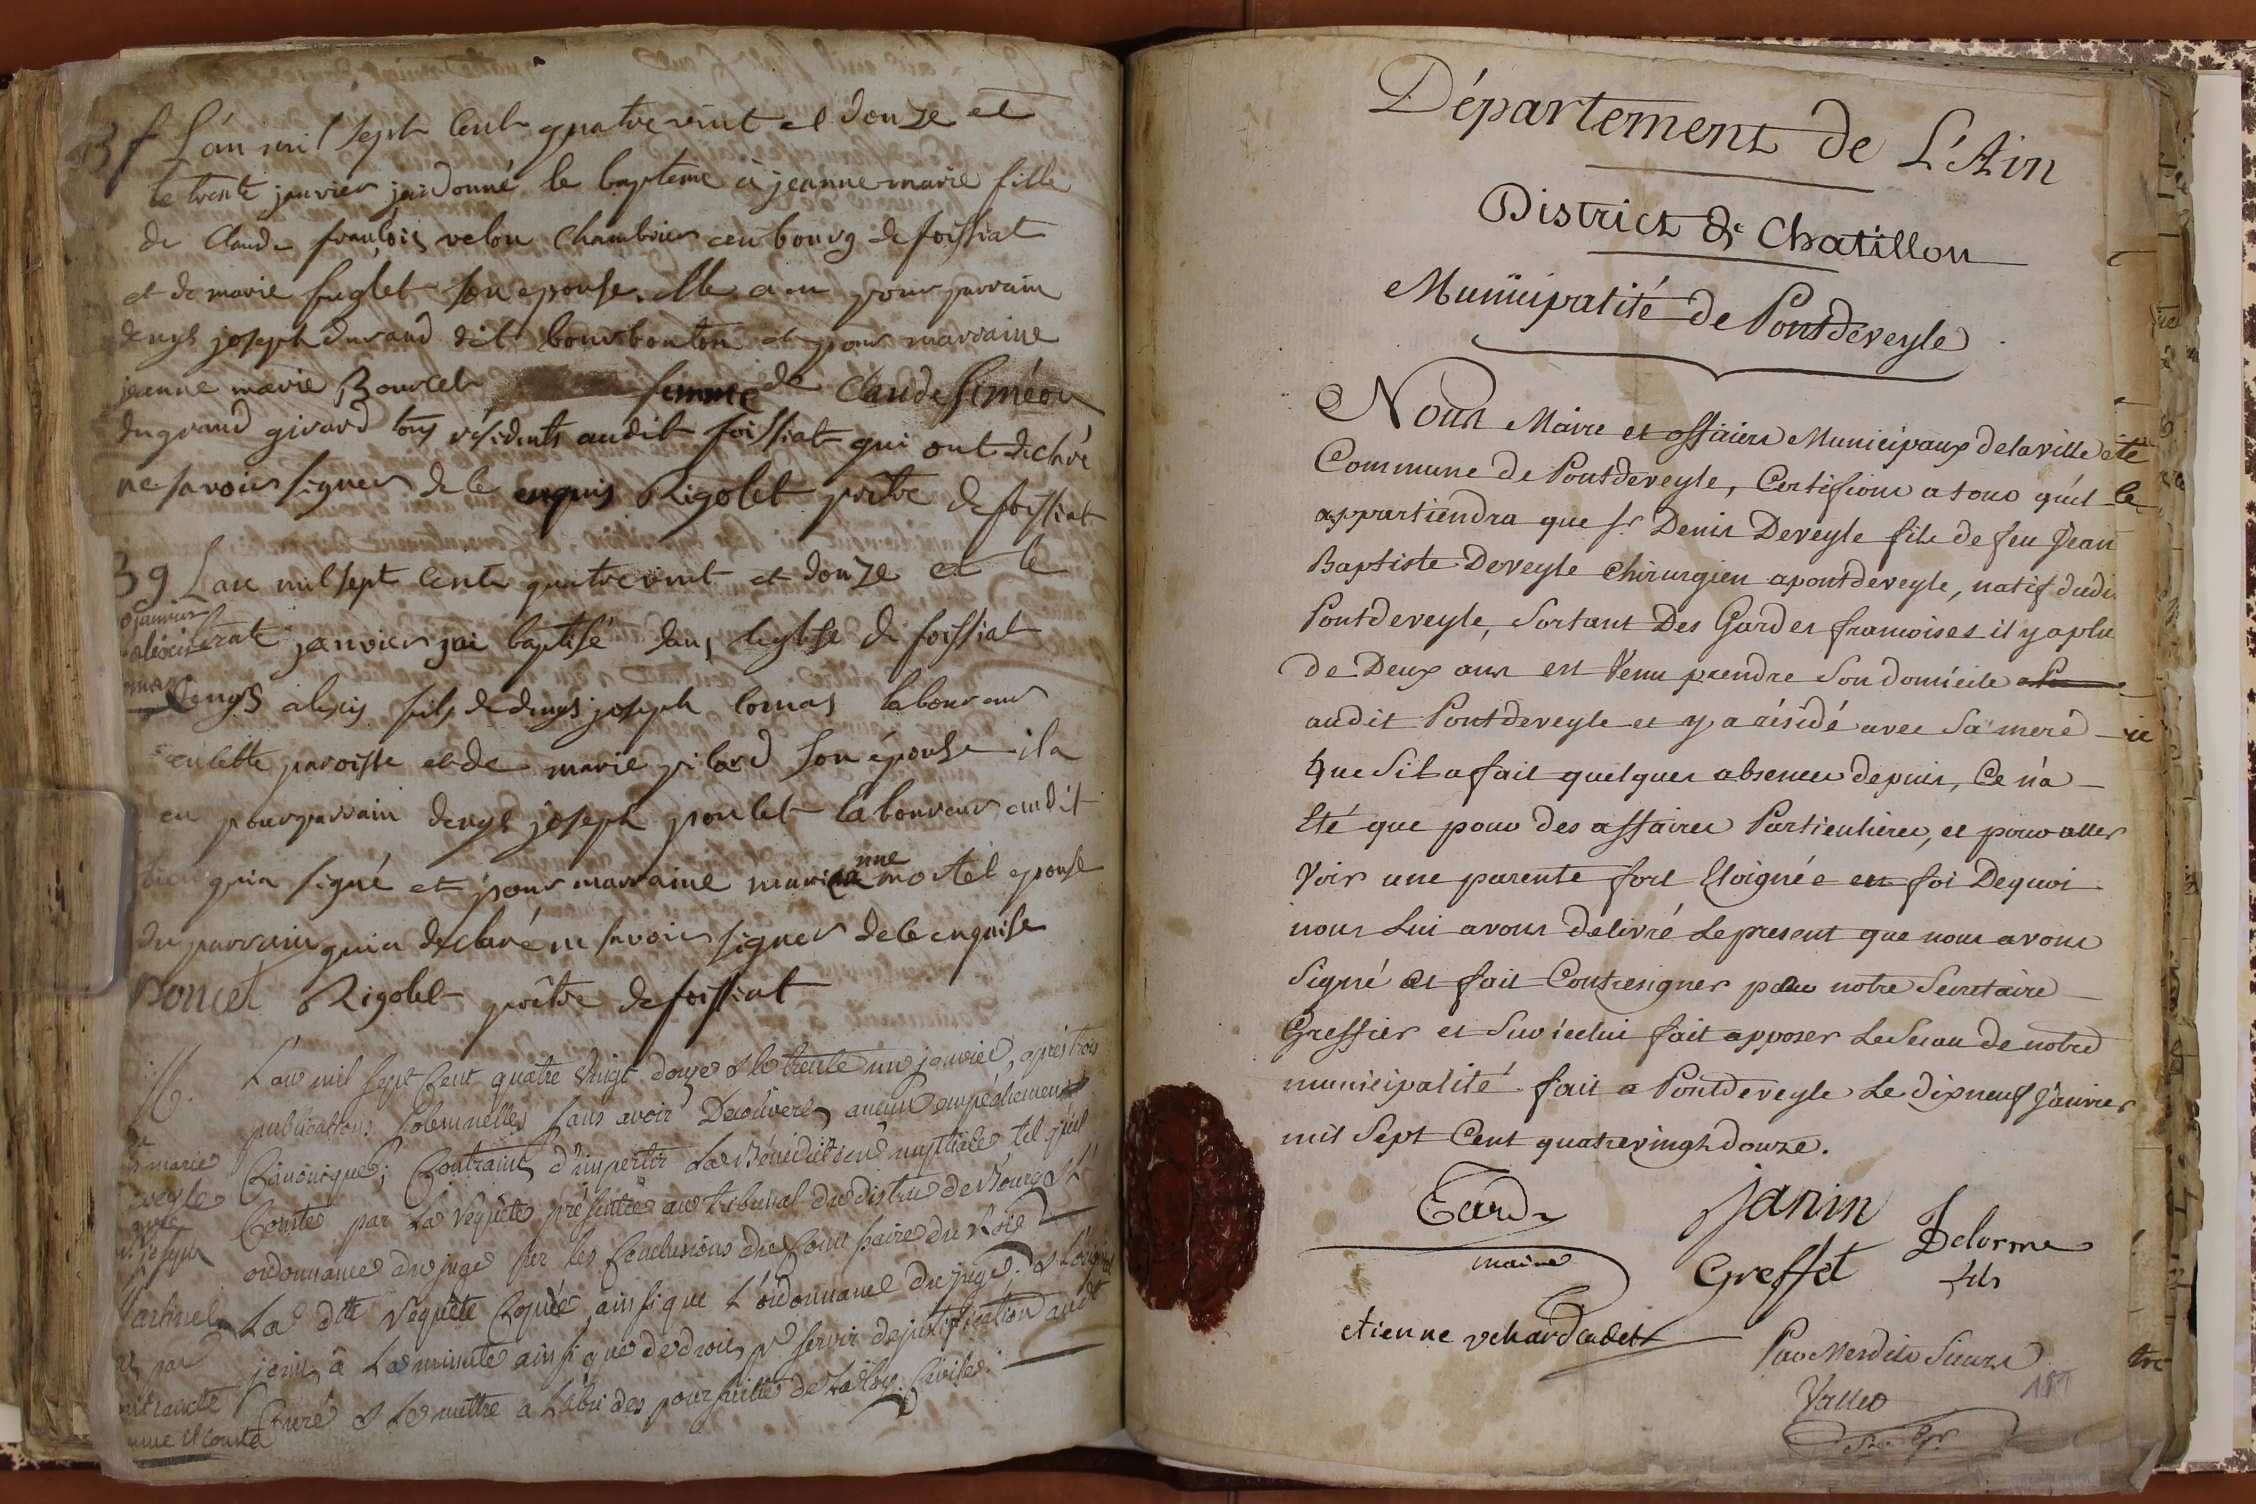 L'an mil sept cent quatre vint et douze et
le trente janvier jai donné le bapteme à jeanne marie fille
de Claude françois velon Chambrier au bourg de foissiat
et de marie fuglet son epouse. elle a eu pour parrain
denys joseph durand dit bourbouton et pour marraine
jeanne marie Boucel femme de Claude siméon
dugrand girard tous résidents audit foissiat qui ont declaré
ne savoir signer de ce enquis Rigolet prêtre de foissiat
39 Lan mil sept cents quatre vint et douze et le
trente janvier jai baptisé dans leglise de foissiat
denys alexis fils de denys joseph comas laboureur
en cette paroisse et de marie pilard son épouse il a
eu pour parrain denys joseph poncet laboureur audit
lieu qui a signé et pour marraine marianne mortel epouse
du parrain qui a déclaré ne savoir signer de ce enquise
poncet Rigolet prêtre de foissiat
L'an mil sept cent quatre vingt douze & le trente un janvier, après trois
publications solemnelles sans avoir Decouvert aucun empéchement
Canonique; Contraint d'impertir La Bénédiction nuptiale tel qu'il
Conste par La requête présentée au tribunal du district de Bourg &
ordonnance du juge sur les Conclusions du Commissaire du Roi
La dtte requête Copiée, ainsi que L'ordonnance du juge, & L'original
joint à La minute ainsi que de droit, pr servir de justification audt
Curé & Le mettre a L'abri des poursuites de La Loy Civile.
Département de L'Ain
District de Chatillon
Municipalité de Pontdeveyle
Nous Maire et officiers Municipaux de la ville et
Commune de Pontdeveyle, Certifions a tous qu'il
appartiendra que Sr. Denis Deveyle fils de feu Jean
Baptiste Deveyle Chirurgien a pontdeveyle, natif dudi
Pontdeveyle, Sortant Des Gardes francoises il y a plu
de Deux ans est Venu prendre Son domicile
audit Pontdeveyle et y a résidé avec Sa mere
que S'il a fait quelques absences depuis, Ce n'a
Eté que pour des affaires Particulieres, et pour aller
Voir une parente fort Eloignée en foi Dequoi
nous Lui avons delivré Le present que nous avons
Signé et fait Contresigner par notre Secretaire
Greffier et Sur icelui fait apposer Le Sceau de notre
municipalité fait a Pontdeveyle Le dix neuf Janvier
mil Sept Cent quatre vingt douze.
Tardy
maire
Janin
Greffet
Delorme
fils
etienne vehard cadet
Par Mesdits Sieurs
187